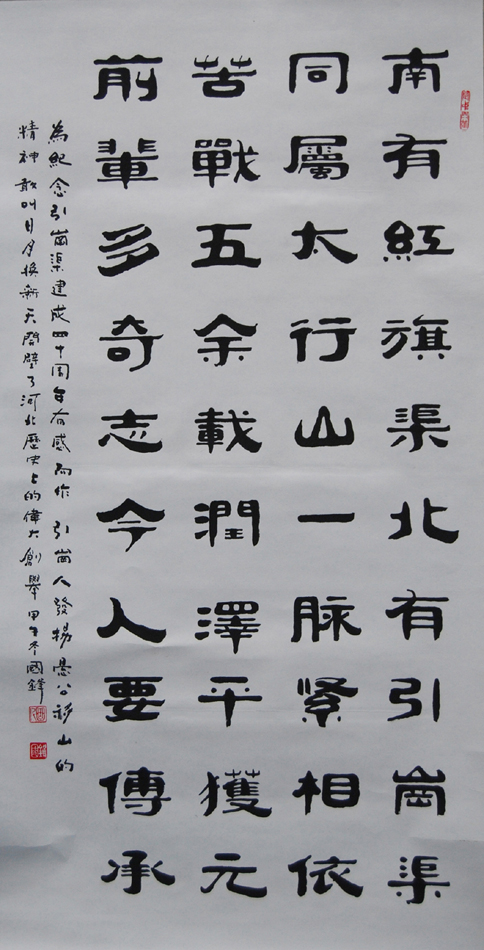 南有紅旗渠北有引崗渠
同屬太行山一脉緊相依
苦戰五余載潤澤平獲元
前輩多奇志今人要傳承
為紀念引崗渠建成四十周年有感而作 引崗人發揚愚公移山的
精神敢叫日月换新天開闢了河北歷史上的偉大創舉甲午冬國鋒